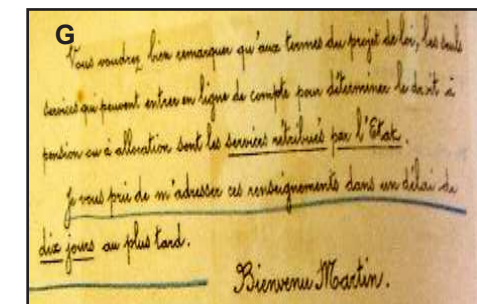 G
Vous voudrez bien remarquer qu'aux termes du projet de loi, les seuls
services qui peuvent entrer en ligne de compte pour déterminer le droit à
pension ou à allocation sont les services rétribués par l'Etat.
Je vous prie de m'adresser ces renseignements dans un délai de
dix jours au plus tard.
Bienvenu Martin.